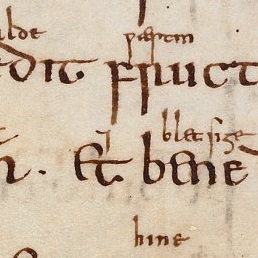 alde ƿæstm
edit fruct
⁊ bletsige
. Et bene
hine